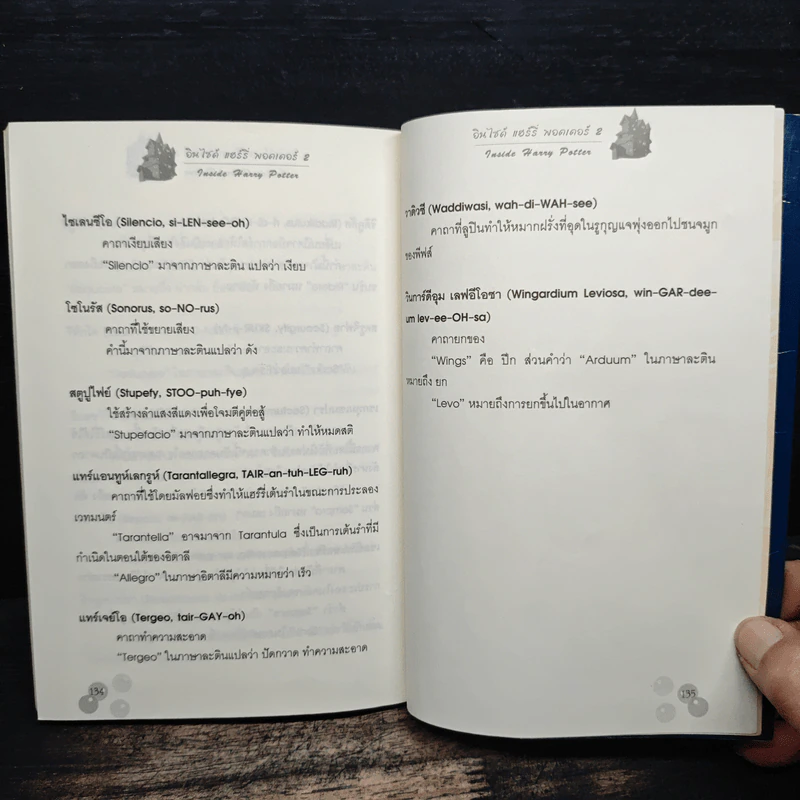 อินไซด์ แฮร์รี่ พอตเตอร์ 2
Inside Harry Potter
ไซเลนซีโอ (Silencio, si-LEN-see-oh)
คาถาเงียบเสียง
“Silencio” มาจากภาษาละติน แปลว่า เงียบ
โซโนรัส (Sonorus, so-NO-rus)
คาถาที่ใช้ขยายเสียง
คำนี้มาจากภาษาละตินแปลว่า ดัง
สตูปูไฟย์ (Stupefy, STOO-puh-fye)
ใช้สร้างลำแสงสีแดงเพื่อโจมตีคู่ต่อสู้
“Stupefacio” มาจากภาษาละตินแปลว่า ทำให้หมดสติ
แทร์แอนทูห์เลกรูห์ (Tarantallegra, TAIR-an-tuh-LEG-ruh)
คาถาที่ใช้โดยมัลฟอยซึ่งทำให้แฮร์รี่เต้นรำในขณะการประลอง
เวทมนตร์
“Tarantella” อาจมาจาก Tarantula ซึ่งเป็นการเต้นรำที่มี
กำเนิดในตอนใต้ของอิตาลี
“Allegro” ในภาษาอิตาลีมีความหมายว่า เร็ว
แทร์เจย์โอ (Tergeo, tair-GAY-oh)
คาถาทำความสะอาด
“Tergeo” ในภาษาละตินแปลว่า ปัดกวาด ทำความสะอาด
134
อินไซด์ แฮร์รี่ พอตเตอร์ 2
Inside Harry Potter
วาดิวซี (Waddiwasi, wah-di-WAH-see)
คาถาที่ลูปินทำให้หมากฝรั่งที่อุดในรูกุญแจพุ่งออกไปชนจมูก
ของพีฟส์
วินการ์ดีอุม เลฟอีโอซา (Wingardium Leviosa, win-GAR-dee-
um lev-ee-OH-sa)
คาถายกของ
“Wings” คือ ปีก ส่วนคำว่า “Arduum” ในภาษาละติน
หมายถึง ยก
“Levo” หมายถึงการยกขึ้นไปในอากาศ
135